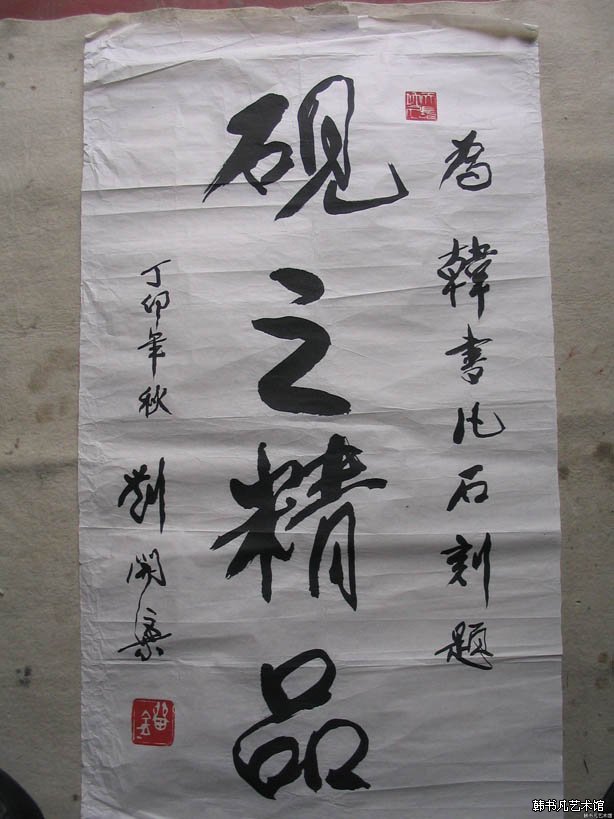 為韓書凡石刻題
硯之精品
丁卯年秋 劉開渠
韩书凡艺术馆